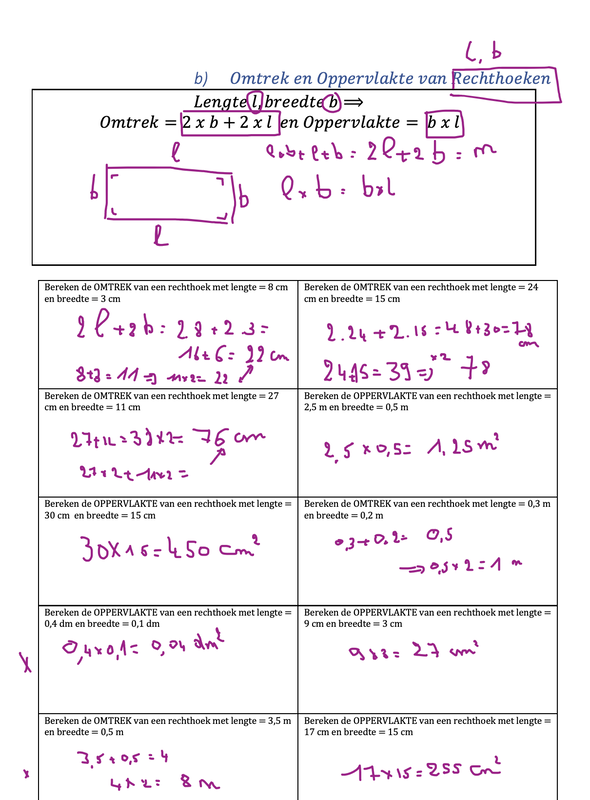 l, b
b) Omtrek en Oppervlakte van Rechthoeken
Lengte l, breedte b ⟹
Omtrek = 2 x b + 2 x l en Oppervlakte = b x l
l
l+b+l+b = 2l+2b = m
b
b
l × b = b×l
l
Bereken de OMTREK van een rechthoek met lengte = 8 cm
en breedte = 3 cm
2l+2b = 2·8+2·3=
16+6=22 cm
8+3=11 ⇒ 11×2= 22
Bereken de OMTREK van een rechthoek met lengte = 24
cm en breedte = 15 cm
2·24+2·15=48+30=78
cm
24+15=39 ⇒ ×2 78
Bereken de OMTREK van een rechthoek met lengte = 27
cm en breedte = 11 cm
27+11=38×2= 76 cm
27×2+11×2=
Bereken de OPPERVLAKTE van een rechthoek met lengte =
2,5 m en breedte = 0,5 m
2,5×0,5= 1,25 m²
Bereken de OPPERVLAKTE van een rechthoek met lengte =
30 cm en breedte = 15 cm
30×15=450 cm²
Bereken de OMTREK van een rechthoek met lengte = 0,3 m
en breedte = 0,2 m
0,3+0,2= 0,5
⟹0,5×2=1 m
Bereken de OPPERVLAKTE van een rechthoek met lengte =
0,4 dm en breedte = 0,1 dm
0,4×0,1=0,04 dm²
x
Bereken de OPPERVLAKTE van een rechthoek met lengte =
9 cm en breedte = 3 cm
9×3= 27 cm²
Bereken de OMTREK van een rechthoek met lengte = 3,5 m
en breedte = 0,5 m
3,5+0,5=4
4×2= 8 m
x
Bereken de OPPERVLAKTE van een rechthoek met lengte =
17 cm en breedte = 15 cm
17×15=255 cm²